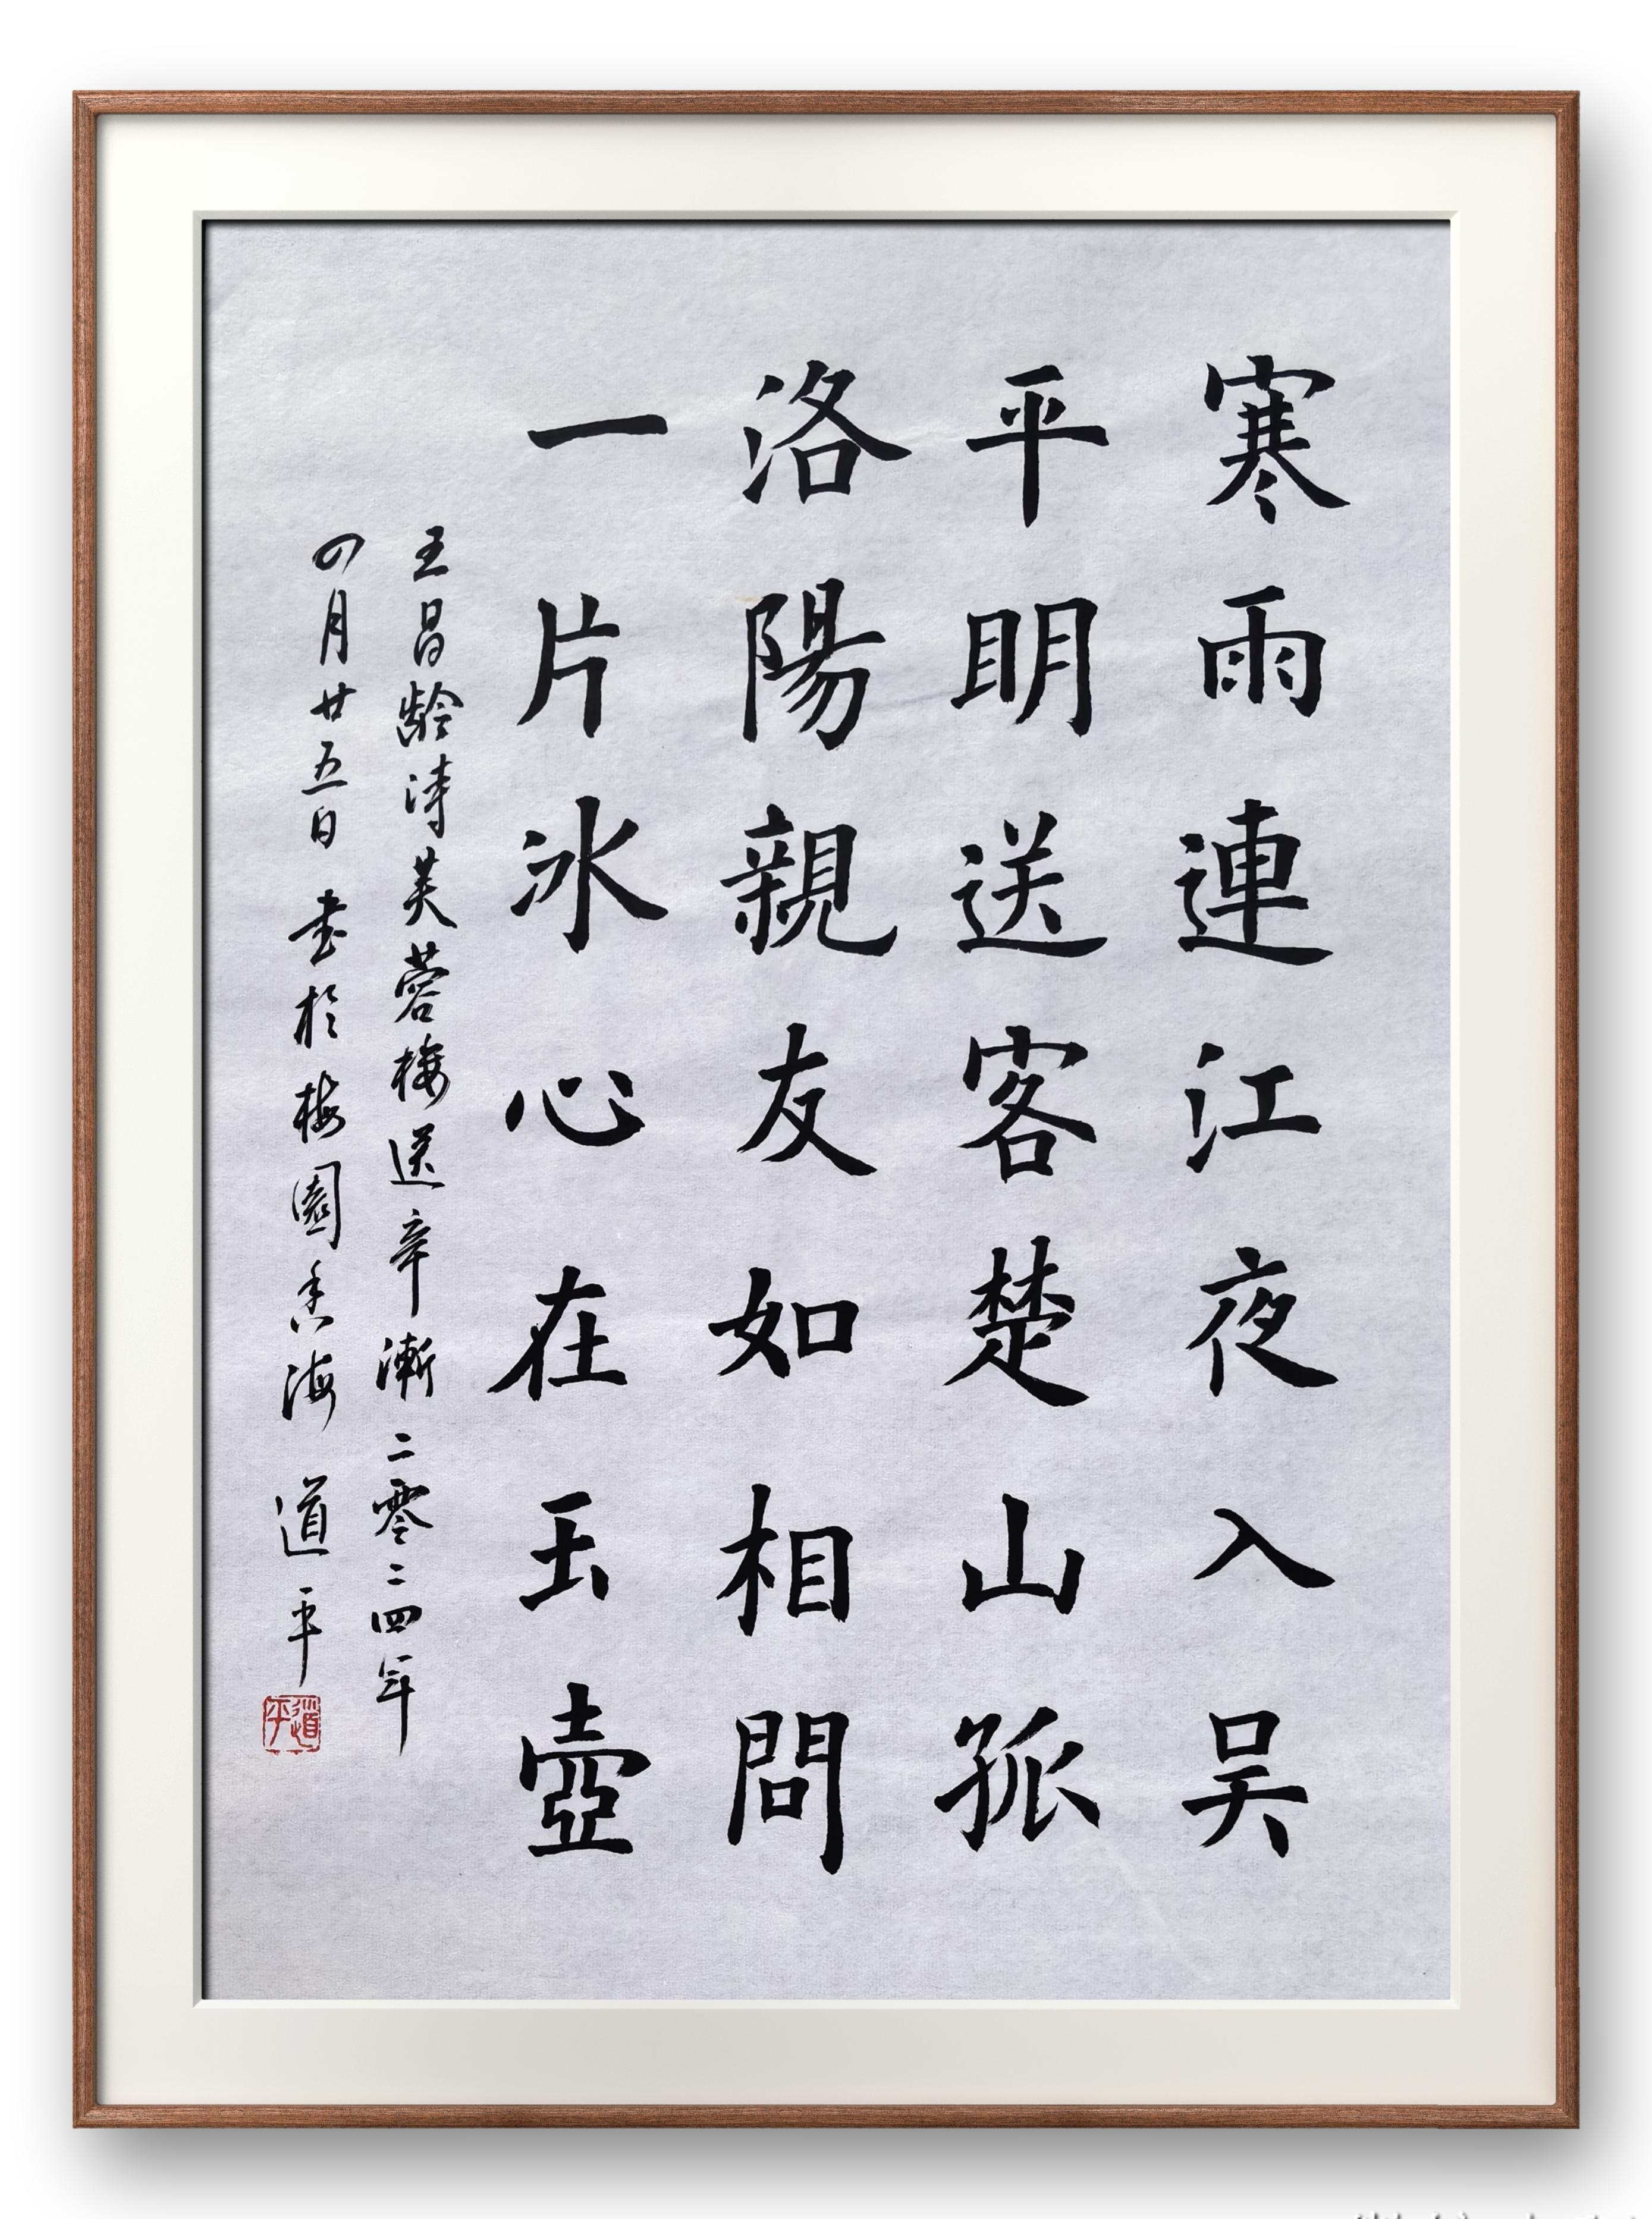 寒雨連江夜入吴
平明送客楚山孤
洛陽親友如相問
一片冰心在玉壺
王昌龄詩芙蓉楼送辛漸二零二四年
四月廿五日書於梅園香海道平
道平